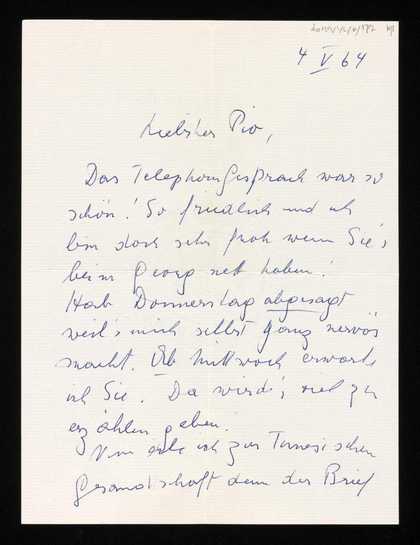 4 V 64
Liebster Pio,
Das Telephongespräch war so
schön! So friedlich und ich
bin doch sehr froh wenn Sie's
beim Georg nett haben!
Hab Donnerstag abgesagt
weil's mich selbst ganz nervös
macht. Ab Mittwoch erwarte
ich Sie. Da wird's viel zu
erzählen geben.
ich zur Tunesischen
Gesandtschaft denn der Brief